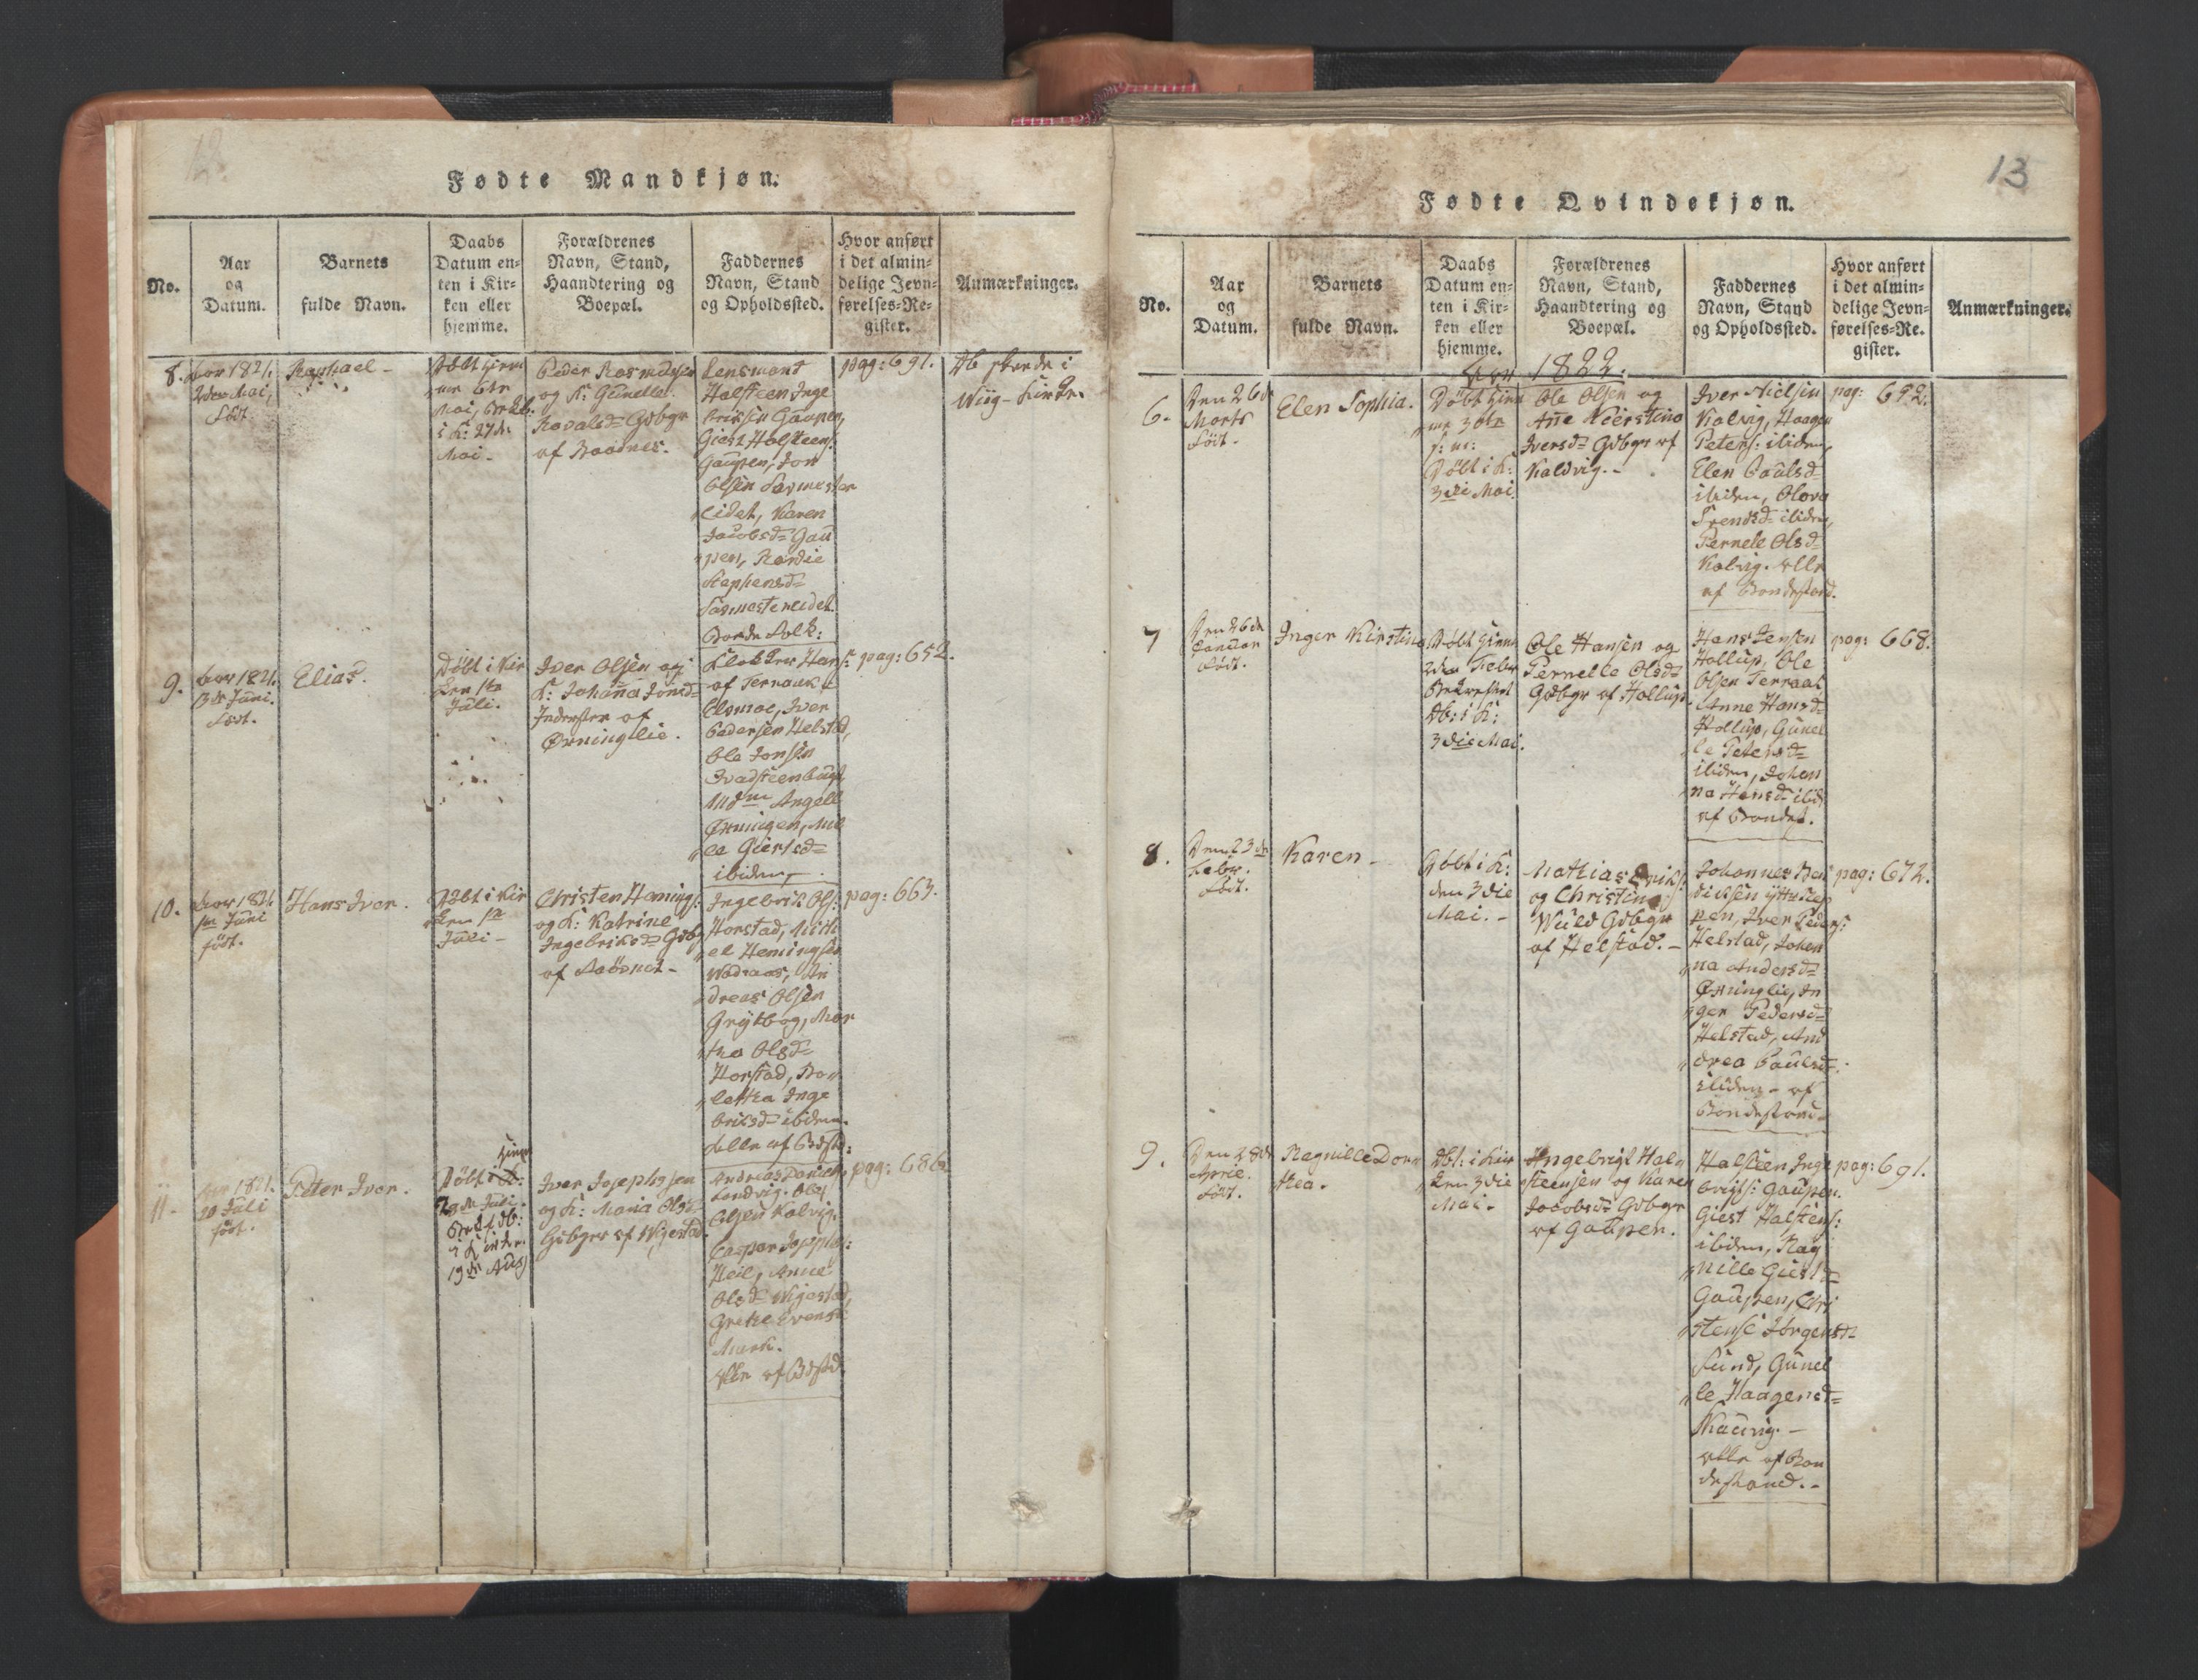 12.
Fødte Mandkjøn.
No.
Aar
og
Datum.
Barnets
fulde Navn.
Daabs
Datum en-
ten i Kir-
ken eller
hjemme.
Forældrenes
Navn, Stand,
Haandtering og
Boepæl.
Faddernes
Navn, Stand
og Opholdssted.
Hvor anført
i det almin-
delige Jevn-
førelses-Re-
gister.
Anmærkninger.
8.
1821.
2den Mai,
født.
Raphael -
Døbt hiem
me 6te
Mai,
i K: 27de
Mai -
Peder Rasmusen
og K: Gunelle
Gdbgr
af Baadnes.
Lensmand
Halsteen Inge
briksen Gaupen,
Giert Halsteens:
Gaupen, Jon
Olsen Sarmester
eidet, Karen
Jacobsd= Gau
pen,
Stephensd=
Sarmestereidet.
Bonde Folk:
pag: 691.
Db skeede i
Wiig - Kirke.
9.
1821.
3de Juni.
født.
Elias.
Døbt i Kir
ken 1te
Juli.
Iver Olsen og
K: Johanna Jonsd=
Inderster af
Øxninglie.
Klokker Hans:
af Ternaak
Elsmoe, Iver
Pedersen Helstad,
Ole Jonsen
Mdm Angell
Øxningen,
Giertsd=
ibidem,
pag: 652.
10.
1821.
1te Juni
født.
Hans Iver.
Døbt i Kir
ken 1te
Juli -
Christen Hemings:
og K: Katrine
Ingebriksd= Gdbg
af
Ingebrik Ols:
Horstad, Mich
el Hemingsen
An
dreas Olsen
Grytbog, Mar
tha Olsd=
Horstad,
letha Inge
briksd= ibidem.
alle af Bdstd:
pag: 663.
11.
1821.
20 Juli
født.
Peter Iver.
hiem
Døbt i K:
i Kirken
19de Aug
Iver Josephsen
og K: Maria Olsd=
Gdbger af Wigestad.
Andreas Daniels
Sandvig. Ole
Olsen Kalvig,
Casper Josephs:
Heil, Anne
Olsd= Wigestad,
Grethe Evensd:
Mark.
alle af Bdstd.
pag: 686
13
Fødte Qvindekjøn.
No.
Aar
og
Datum.
Barnets
fulde Navn.
Daabs
Datum en-
ten i Kir-
ken eller
hjemme.
Forældrenes
Navn, Stand,
Haandtering og
Boepæl.
Faddernes
Navn, Stand
og Opholdssted.
Hvor anført
i det almin-
delige Jevn-
førelses-Re-
gister.
Anmærkninger.
Aar 1822.
6.
Den 26de
Marts
født.
Elen Sophia.
Døbt hiem
me 30te
s: m:
Døbt i K:
3die Mai.
Ole Olsen og
Ane Kierstina
Iversd= Gdbgr af
Kaldvig. -
Iver Nielsen
Kalvig, Haagen
Peters: ibidem,
Elen Paulsd=
ibidem, Olava
Svendsd= ibidem,
Pernele Olsd=
Kalvig. alle
af Bondestand.
pag: 692.
7
Den 26de
Januar
født.
Inger Kirstina
Døbt hiem
2den Febr
Bekræftet
Db: i K:
3die Mai.
Ole Hansen og
Pernelle Olsd=
Gdbgr af Hollup
Hans Jensen
Hollup, Ole
Olsen Ternaak
Anne Hansd=
Hollup, Gunel
le Petersd=
ibidem, Johan
na Hansd= ibid
af Bondest.
pag: 668.
8.
Den 23de
Febr.
født.
Karen -
Døbt i K:
den 3die
Mai. -
Mathias Eriks:
og Christina
Wuld Gdbgr
af Helstad. -
Johannes Ben
dicksen Yttre Rep
pen, Iver Peders:
Helstad, Johan
na Andersd=
Øxninglie, In
ger Pedersd=
Helstad, And
drea Paulsd=
ibidem - af
Bondestand -
pag: 672.
9.
Den 28de
April
født.
Ragnille Doro
thea.
Dbt: i Kir
ken 3die
Mai.
Ingebrigt Hal
steensen og Karen
Jacobsd= Gdbgr
af Gaupen.
Halsteen Inge
brigts: Gaupen.
Giert Halstens:
ibidem, Rag
nille Giertsd=
Gaupen, Chri
stense Jørgensd=
Sund, Gunel
le Haagensd=
Kalvig. -
alle af Bon
destand. -
pag: 691.